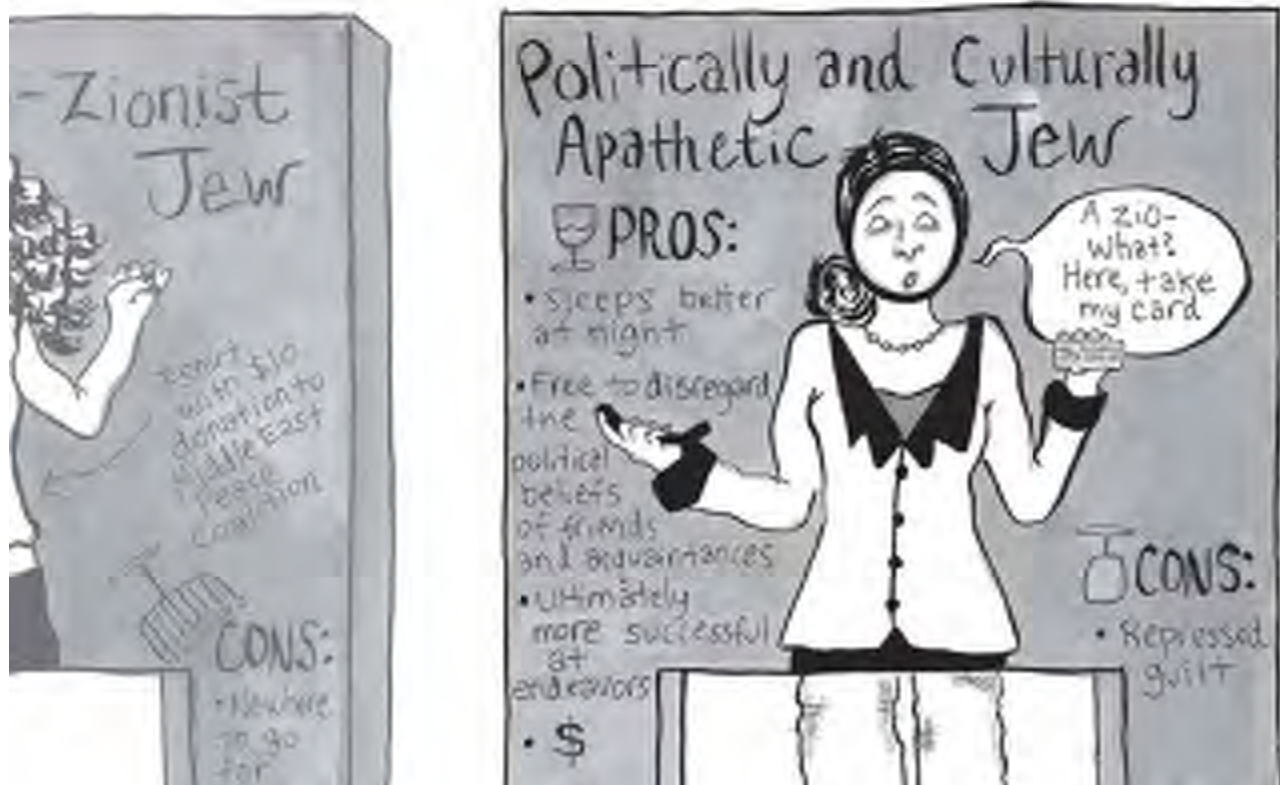 -Zionist
Jew
with $10
donation to
Middle East
Peace
Coalition
CONS:
• Nowhere
to go
for
Politically and Culturally
Apathetic Jew
PROS:
• sleeps better
at night
• Free to disregard
the
political
beliefs
of friends
and acquaintances
• ultimately
more successful
at
endeavors
• $
A zio-
what?
Here, take
my card
CONS:
• Repressed
guilt